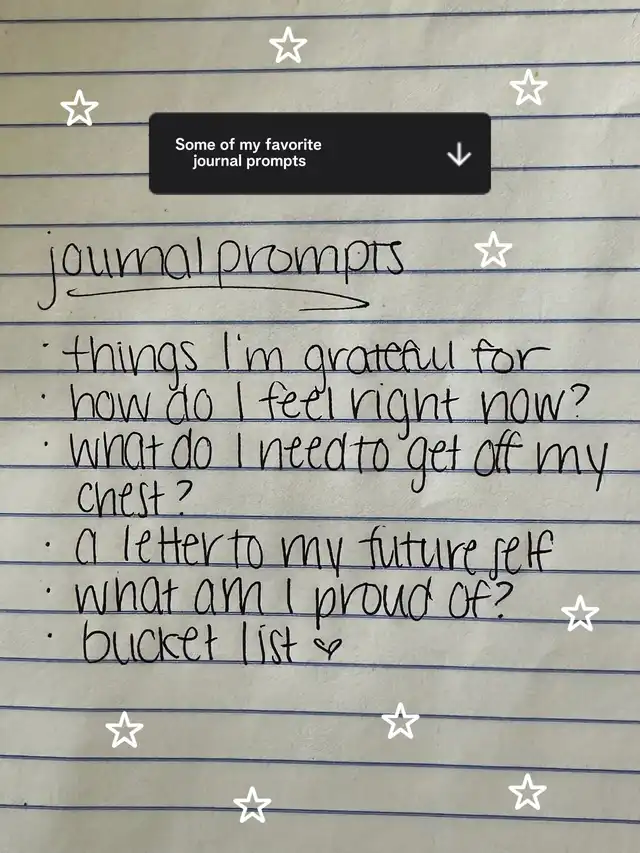 Some of my favorite
journal prompts
journal prompts
· things I'm grateful for
· how do I feel right now?
· what do I need to get off my
chest?
· a letter to my future self
· what am I proud of?
· bucket list ♡